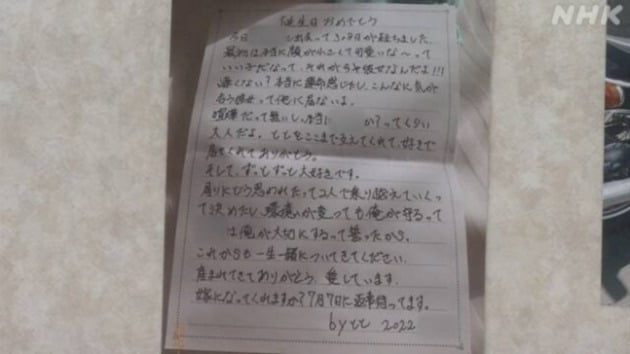 NHK
誕生日おめでとう
今日 出会って 日が経ちました。
最初は本当に顔が小さくて可愛いな〜って
いい子だなって、それが今や彼女なんだよ!!!
凄くない?本当に運命感じたし、こんなに気が
合う彼女って他に居ないよ。
喧嘩だって無いし、本当に か?ってくらい
大人だよ。ととをここまで支えてくれて、好きで
居てくれてありがとう。
そして、ずっとずっと大好きです。
周りにどう思われたって2人で乗り越えていくっ
て決めたし、環境が変っても俺が守るって
は俺が大切にするって誓ったから。
これからも一生一緒についてきてください。
産まれてきてありがとう、愛しています。
嫁になってくれますか?7月7日に返事待ってます。
by とと 2022